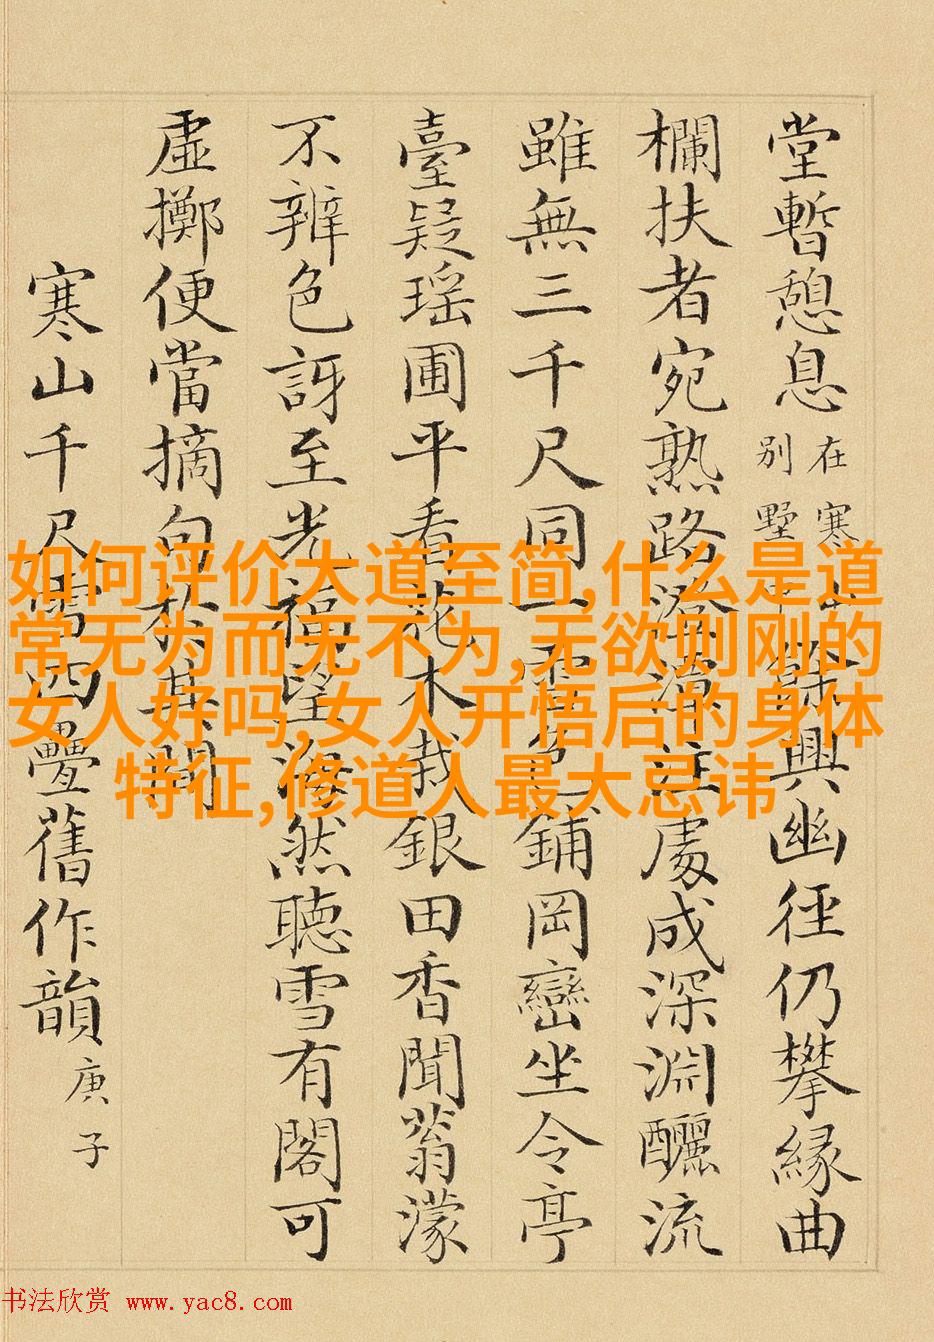 堂暫憩息在寒山別墅中餘興幽徑仍攀緣曲
欄扶者宛熟路澄注處成深淵釃流
雖無三千尺同一雪色鋪岡巒坐令亭
臺疑瑶圃平看花木栽銀田香聞蓊濛
不辨色訝至光福望海然聽雪有閣可
虛擲便當摘句於其間
寒山千尺雪四疊舊作韻庚子
如何评价大道至简,什么是道
常无为而无不为,无欲则刚的
女人好吗,女人开悟后的身体
特征,修道人最大忌讳
书法欣赏 www.yac8.com